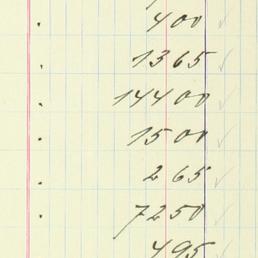 400
1365
14400
1500
265
7250
495